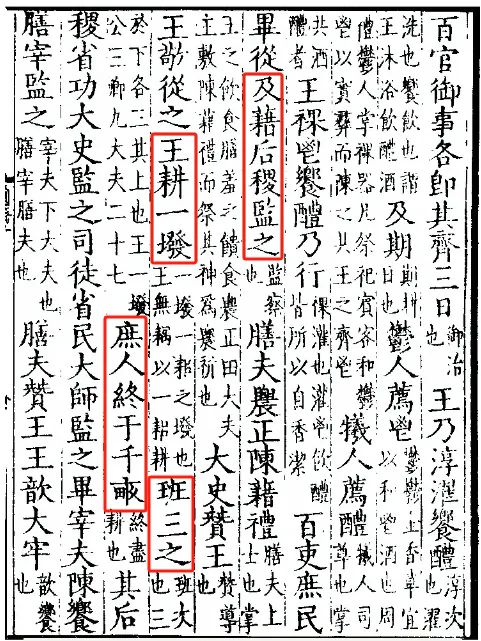 百官御事各即其齊三日御治也王乃淳濯饗醴淳沃也濯
洗也饗飲也謂王沐浴飲醴酒及期期耕日也鬱人薦鬯鬱鬱金香草宜以和鬯酒也周
禮鬱人掌祼器凡祭祀賓客和鬱鬯以實彝而陳之共王之齊鬯犧人薦醴犧人司尊也掌
共酒醴者王祼鬯饗醴乃行祼灌也灌鬯飲醴皆所以自香潔百吏庶民
畢從及藉后稷監之監察也膳夫農正陳藉禮膳夫上士也掌
王之飲食膳羞之饋食農正田大夫主敷陳藉禮而祭其神爲農祈也大史贊王贊導也
王敬從之王耕一墢一墢一耜之墢也王無耦以一耜耕班三之班次也三
於下各三其上也王一墢公三卿九大夫二十七庶人終于千畝終盡耕也其后
稷省功大史監之司徒省民大師監之畢宰夫陳饗
膳宰監之宰夫下大夫也膳宰膳夫也膳夫贊王王歆大牢歆饗也